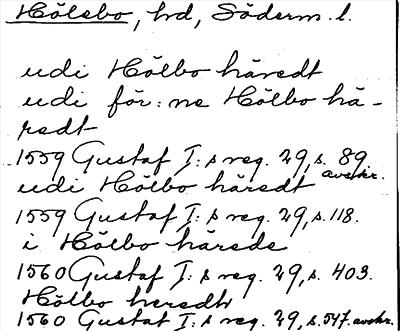 Hölebo, hd, Söderm. l.
udi Hölbo häredt
udi för: ne Hölbo hä-
redt
1559 Gustaf I: s reg. 29, s. 89
avskr.
udi Hölbo häredt
1559 Gustaf I: s reg. 29, s. 118.
i Hölbo härede
1560 Gustaf I: s reg. 29, s. 403.
Hölbo heredh
1560 Gustaf I: s reg. 29, s. 547. avskr.